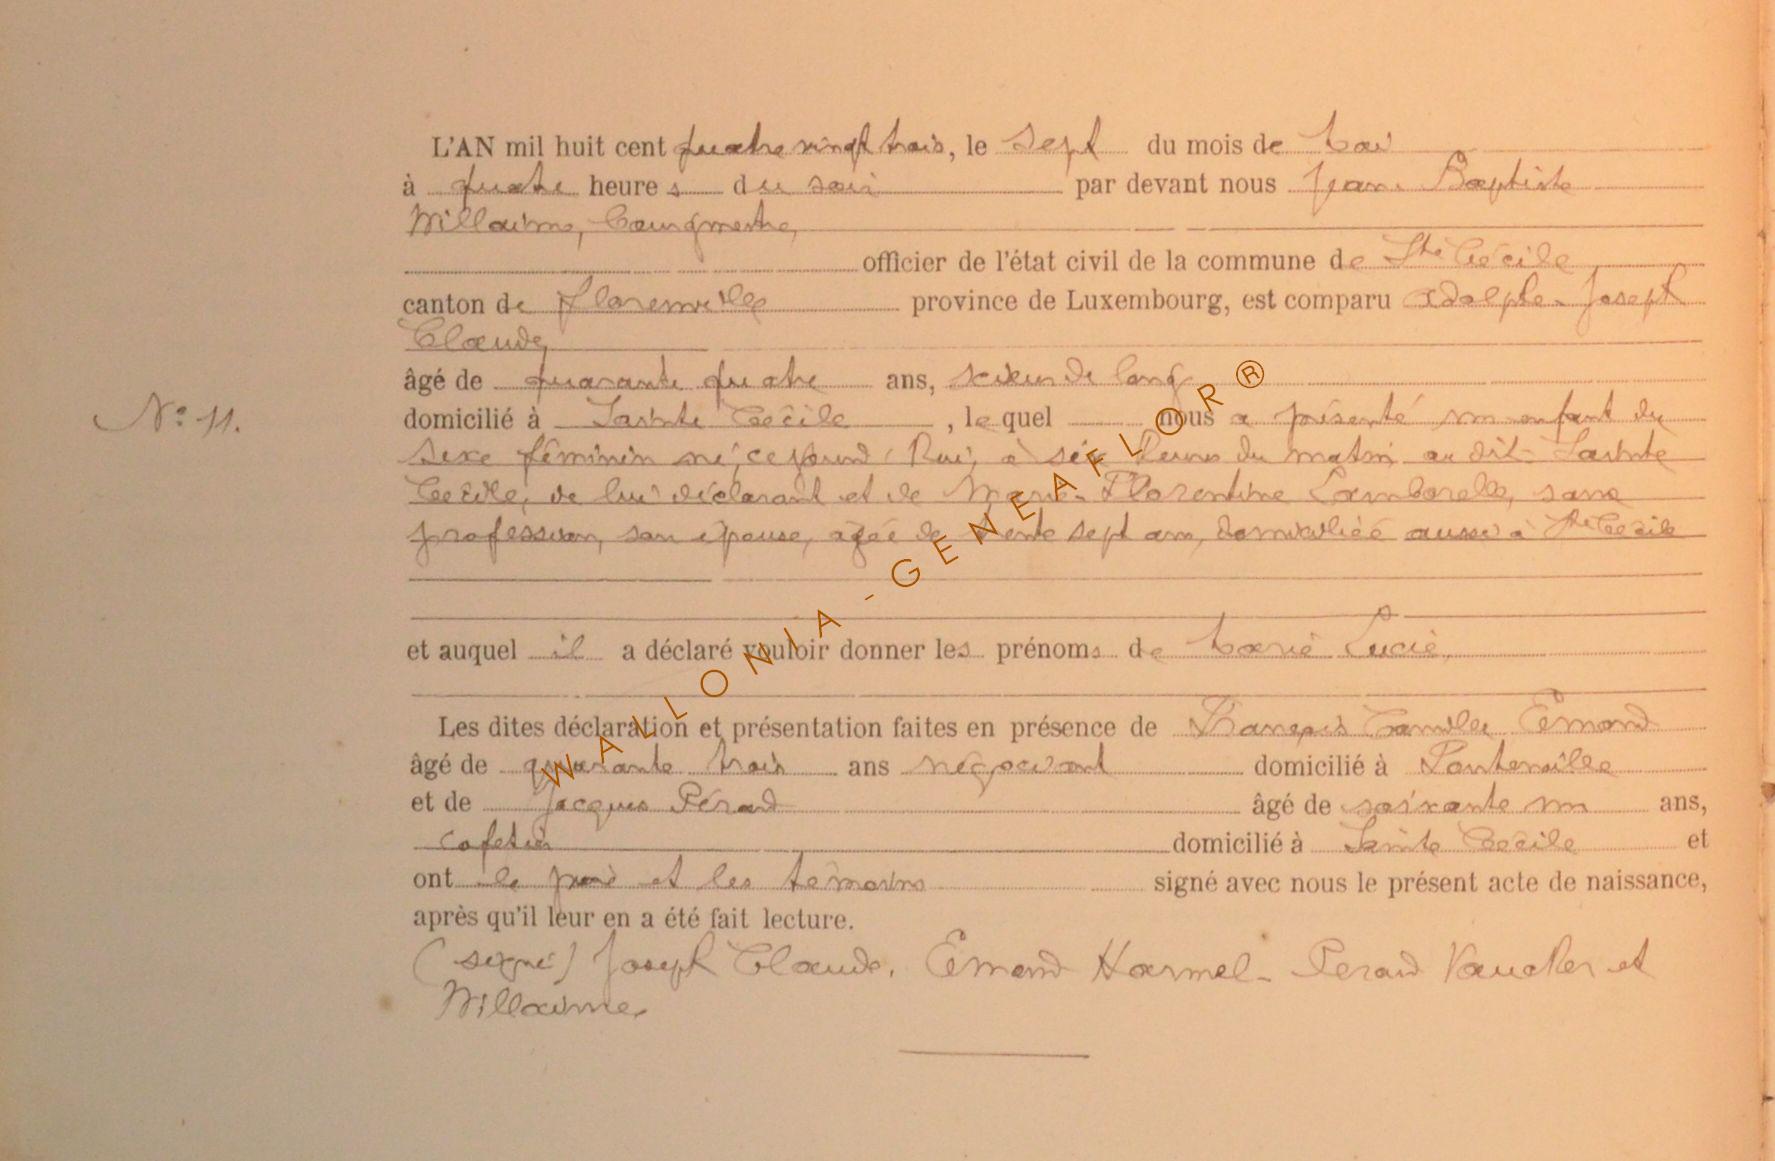 L'AN mil huit cent quatre vingt trois, le sept du mois de Mai
à quatre heures du soir par devant nous Jean Baptiste
Willaime, bourgmestre,
officier de l'état civil de la commune de Ste Cécile
canton de Florenville province de Luxembourg, est comparu Adolphe Joseph
Claude,
âgé de quarante quatre ans, scieur de long
N° 11.
domicilié à Sainte Cécile, lequel nous a présenté un enfant du
sexe féminin né, ce jourd'hui, à six heures du matin au dit Sainte
Cécile, de lui déclarant et de Marie Florentine Lamborelle, sans
profession, son épouse, agée de trente sept ans, domiciliée aussi à Ste Cécile
et auquel il a déclaré vouloir donner les prénoms de Marie Lucie,
Les dites déclaration et présentation faites en présence de François Camille Emond
âgé de quarante trois ans négociant domicilié à Fontenoille
et de Jacques Pérard âgé de soixante un ans,
cafetier domicilié à Sainte Cécile et
ont le père et les témoins signé avec nous le présent acte de naissance,
après qu'il leur en a été fait lecture.
(signé) Joseph Claude, Emond Harmel - Perard Vaucher et
Willaime,
WALLONIA-GENEAFLOR®